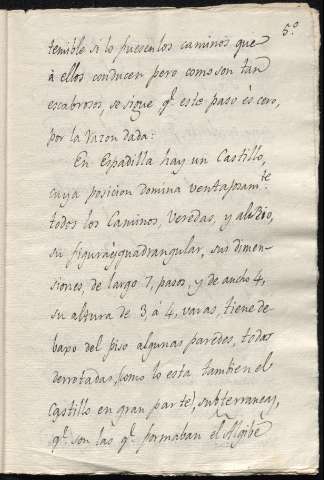 5.º
temible si lo fuesen los caminos que
à ellos conducen pero como son tan
escabrosos, se sigue q.e este paso és cero,
por la razon dada:
En Espadilla hay un Castillo,
cuya posicion domina ventajosam.te
todos los Caminos, Veredas, y al Rio,
su figura és quadrangular, sus dimen-
siones, de largo 7, pasos, y de ancho 4,
su altura de 3 á 4, varas, tiene de-
baxo del piso algunas paredes, todas
derrotadas, (como lo esta tambien el
Castillo en gran parte), subterraneas,
q.e son las q.e formaban el Algibe